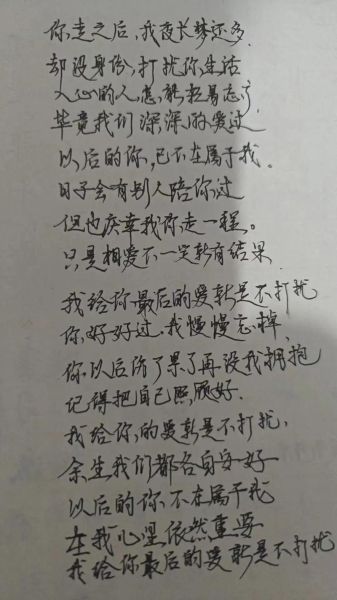 你走之后,我夜长梦还多
却没身份,打扰你生活
入心的人,怎能轻易忘了
毕竟我们深深的爱过
以后的你,已不在属于我。
日子会有别人陪你过
但也庆幸我你走一程。
只是相爱不一定都有结果
我给你最后的爱就是不打扰
你好好过.我慢慢忘掉
你以后伤了累了再没我拥抱
记得把自己照顾好.
我给你,的爱就是不打扰,
余生我们都各自安好
以后的你不在属于我
在我心里依然重要
我给你最后的爱就是不打扰